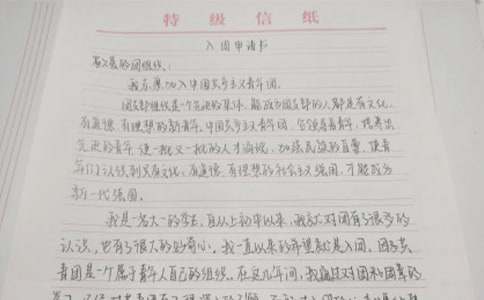 特级信纸
入团申请书
的团组织:
我志愿加入中国共产主义青年团。
团支部组织是一个先进的集体,能成为团支部的人都是有文化、
有道德、有理想的新青年。中国共产主义青年团,培养出
先进的青年,使一批又一批的人才涌现,加强民族的
年们认识到只有文化、有道德、有理想的社会主义强国,才能成为
新一代强国。
我是一名大一的学生,自从上初中以来,我就对团有了很多的
认识,也有了很大的好奇心。我一直以来的希望就是入团。团
青团是一个属于青年人自己的组织。在这几年间,我对团和团章的